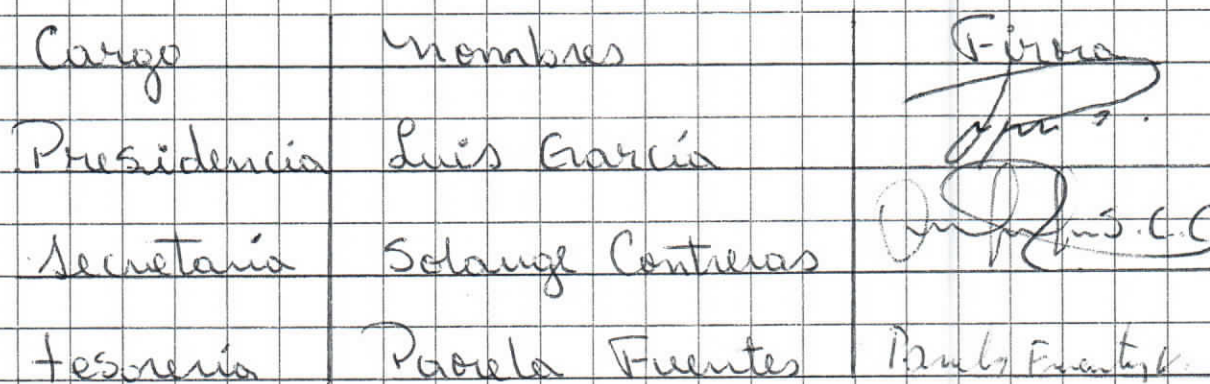 Cargo Nombres Firma
Presidencia Luis García
Secretaría Solange Contreras S.C.C
tesorería Pamela Fuentes Pamela Fuentes